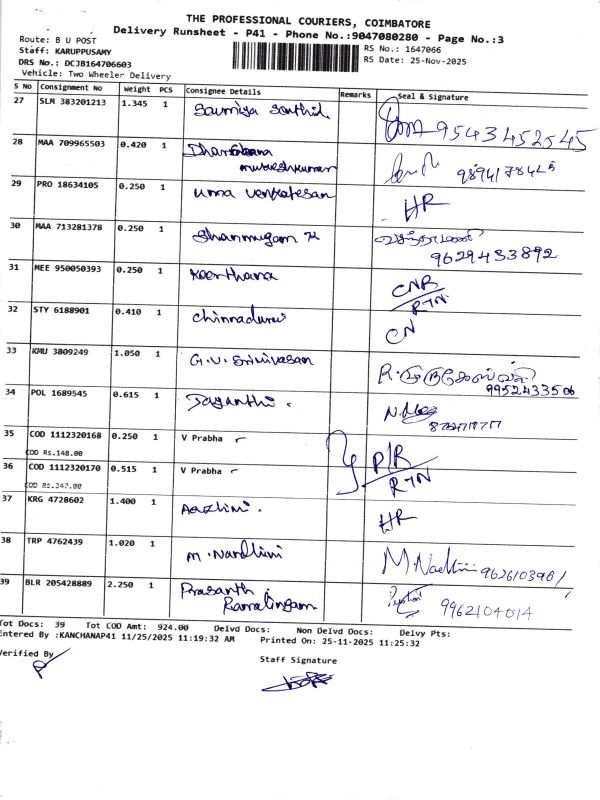 THE PROFESSIONAL COURIERS, COIMBATORE
Delivery Runsheet - P41 - Phone No.:9047080280 - Page No.:3
Route: B U POST
Staff: KARUPPUSAMY
DRS No.: DCJB164706603
Vehicle: Two Wheeler Delivery
RS No.: 1647066
RS Date: 25-Nov-2025
S No Consignment No Weight PCS Consignee Details Remarks Seal & Signature
27 SLM 383201213 1.345 1 Saumiya Senthil 9543452545
28 MAA 709965503 0.420 1 mutheshkumar
29 PRO 18634105 0.250 1 uma venkatesan HR
30 MAA 713281378 0.250 1 Shanmugam K
9629433892
31 MEE 950050393 0.250 1 Keerthana CNR
RTN
32 STY 6188901 0.410 1 chinnadurai CN
33 KMU 3809249 1.050 1 G.V. Srinivasan
9952433506
34 POL 1689545 0.615 1 Jayanthi.
35 COD 1112320168 0.250 1 V Prabha
COD RS.148.00
P/R
RTN
36 COD 1112320170 0.515 1 V Prabha
COD RS.347.00
37 KRG 4728602 1.400 1 HR
38 TRP 4762439 1.020 1 M. Nandhini M.Nandhini
39 BLR 205428889 2.250 1 Prasanth
Ramalingam 9962104014
Tot Docs: 39 Tot COD Amt: 924.00 Delvd Docs: Non Delvd Docs: Delvy Pts:
Entered By :KANCHANAP41 11/25/2025 11:19:32 AM Printed On: 25-11-2025 11:25:32
Verified By
Staff Signature